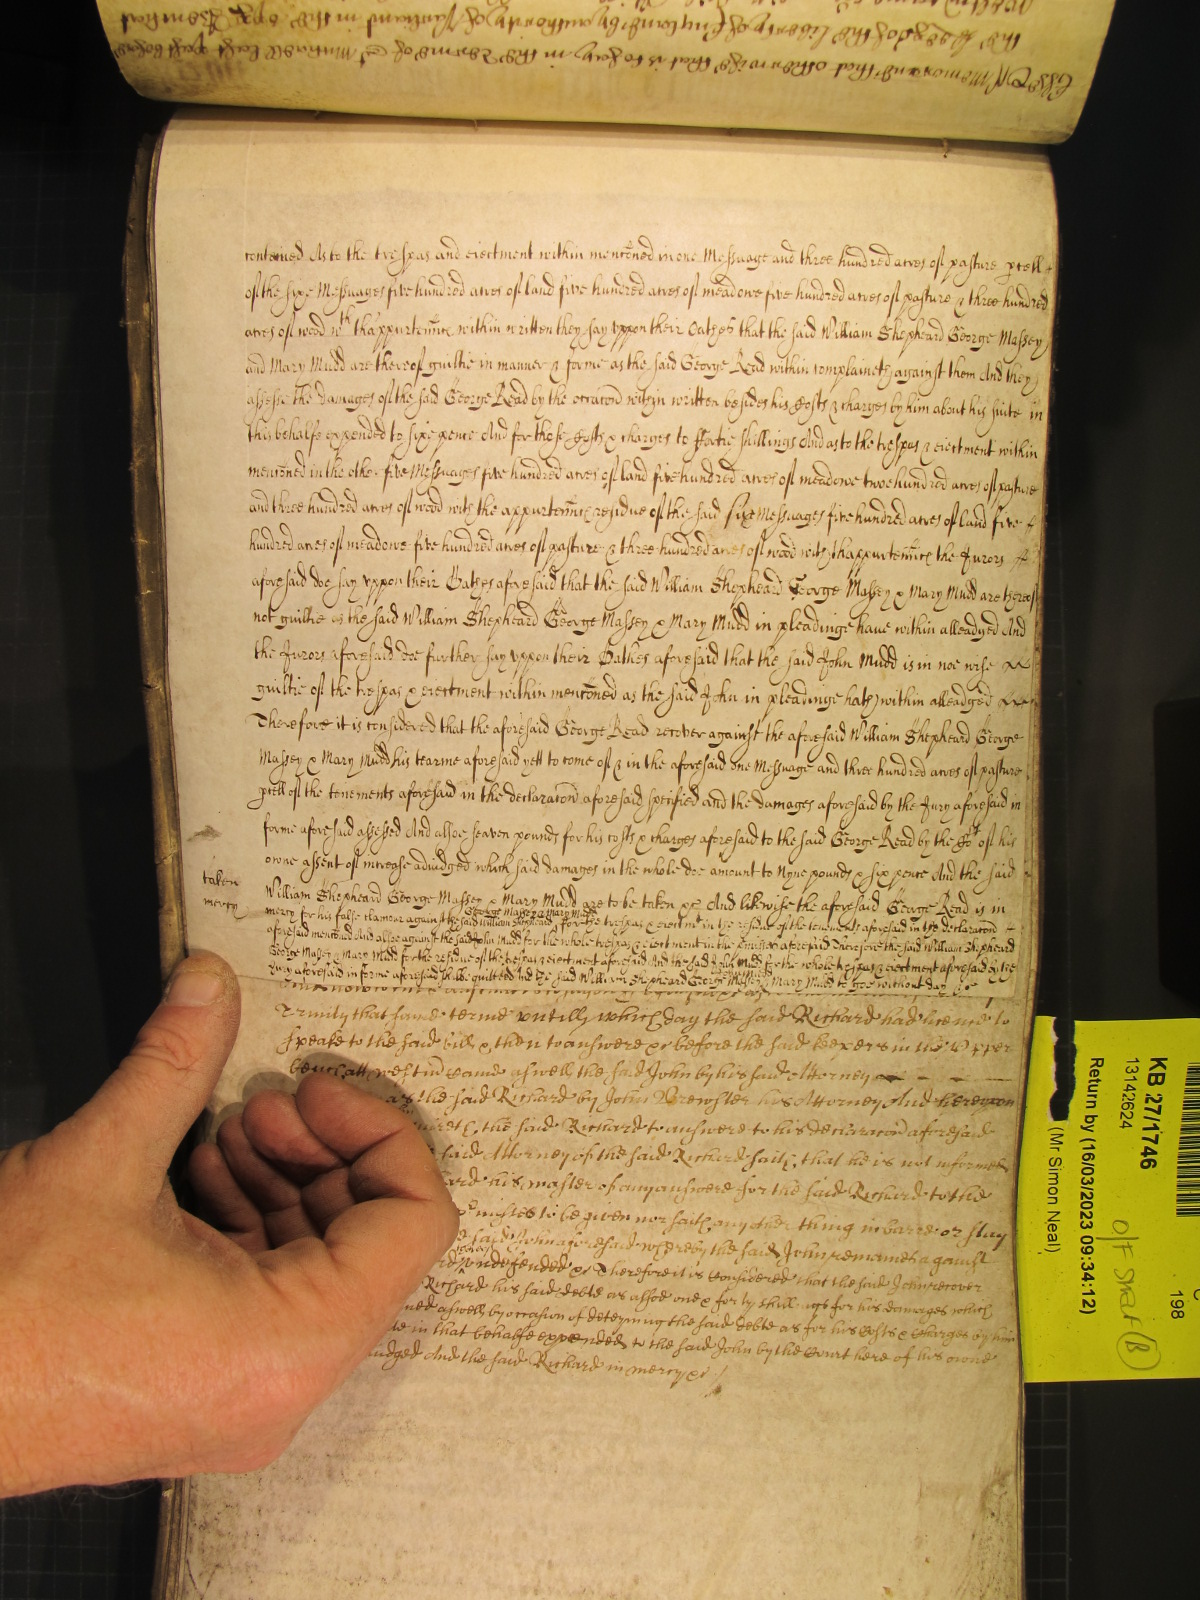 contained As to the trespas and eiectment within mencõned in one Messuage and three hundred acres of pasture pcell
of the sixe Messuages five hundred acres of land five hundred acres of meadowe five hundred acres of pasture & three hundred
acres of wood wth thappurtennc̃ within written they say vppon their Oathes that the said William Shepheard George Massey
and Mary Mudd are thereof guiltie in manner & forme as the said George Read within complaineth against them And they
assesse the damages of the said George Read by the occacõn within written besides his Costs & charges by him about his suite in
this behalfe expended to sixe pence And for those Costs & charges to ffortie shillings And as to the trespas & eiectment within
mencõned in the other five Messuages five hundred acres of land five hundred acres of meadowe two hundred acres of pasture
and three hundred acres of wood with the appurtennc̃ residue of the said sixe Messuages five hundred acres of land five
hundred acres of meadowe five hundred acres of pasture & three hundred acres of wood with thappurtennc̃ the Jurors
aforesaid doe say vppon their Oathes aforesaid that the said William Shepheard George Massey & Mary Mudd are thereof
not guiltie as the said William Shepheard George Massey & Mary Mudd in pleadinge have within alleadged And
the Jurors aforesaid doe further say vppon their Oathes aforesaid that the said John Mudd is in noe wise
guiltie of the trespas & eiectment within mencõned as the said John in pleadinge hath within alleadged
Therefore it is considered that the aforesaid George Read recover against the aforesaid William Shepheard George
Massey & Mary Mudd his tearme aforesaid yett to come of & in the aforesaid one Messuage and three hundred acres of pasture
pcell of the tenements aforesaid in the declaracõn aforesaid specified and the damages aforesaid by the Jury aforesaid in
forme aforesaid assessed And alsoe seaven pounds for his costs & charges aforesaid to the said George Read by the Cot of his
owne assent of increase adiudged which said damages in the whole doe amount to Nyne pounds & six pence And the said
taken
mercy
William Shepheard George Massey & Mary Mudd are to be taken &c And likewise the aforesaid George Read is in
George Massey & Mary Mudd
mercy for his false clamour against the said William Shepheard for the trespas & eiectmt in the residue of the tenements aforesaid in the declaracõn
aforesaid mencõned And alsoe against the said John Mudd for the whole trespas & eiectment in the premisses aforesaid Therefore the said William Shepheard
George Massey & Mary Mudd for the residue of the trespas & eiectment aforesaid And the said John Mudd for the whole trespas & eiectment aforesaid by the
Jury aforesaid in forme aforesaid shalbe quitted And the said William Shepheard George Massey Mary Mudd to goe without day &c
Trinity that same terme vntill which day the said Richard had licence to
speake to the said bill & then to answere &c before the said keepers in the Vpper
bench att westm̃ came aswell the said John by his said Attorney
as the said Richard by John Brewster his Attorney And herevpon
the said Richard to answere to his declaracõn aforesaid
said Attorney of the said Richard saith that he is not informed
his master of any answere for the said Richard to the
misses to be given nor saith any other thing in barre or stay
said John aforesaid whereby the said John remaines against
vndefended &c Therefore it is considered that the said John recover
Richard his said debte as alsoe one & forty shillings for his damages which
aswell by occasion of deteyning the said debte as for his Costs & charges by him
in that behalfe expended to the said John by the Court here of his owne
And the said Richard in mercy &c
KB 27/1746
13142624
Return by (16/03/2023 09:34:12)
(Mr Simon Neal)
198